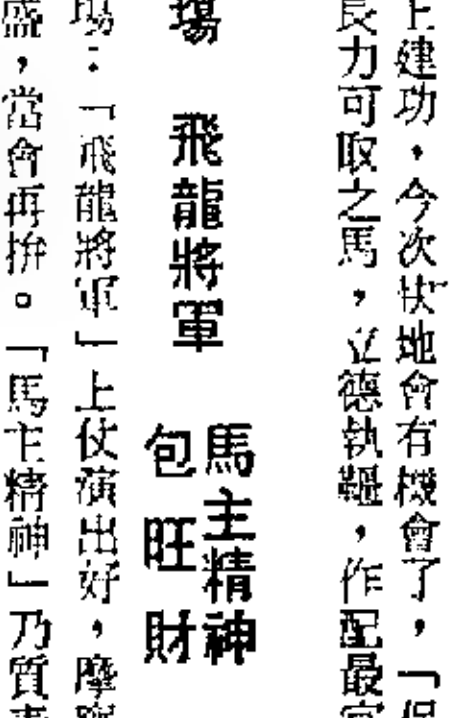 建功，今次快地會有機會了，「
力可取之馬，立德執韁，作配最
馬主精神
場　飛龍將軍　包旺財
：「飛龍將軍」上仗演出好，摩
盛，當會再拚。「馬主精神」乃質